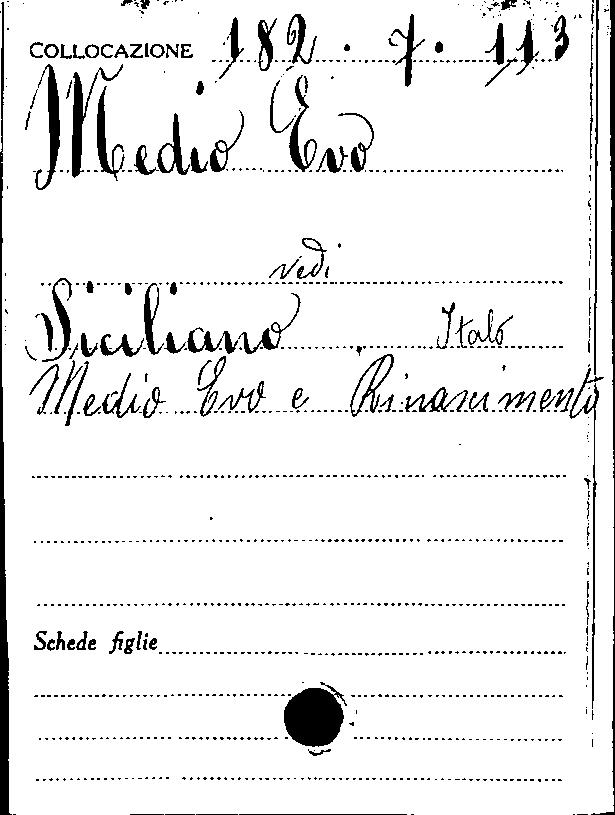 COLLOCAZIONE 182 . 7 . 113
Medio Evo
vedi
Siciliano, Italo
Medio Evo e Rinascimento
Schede figlie